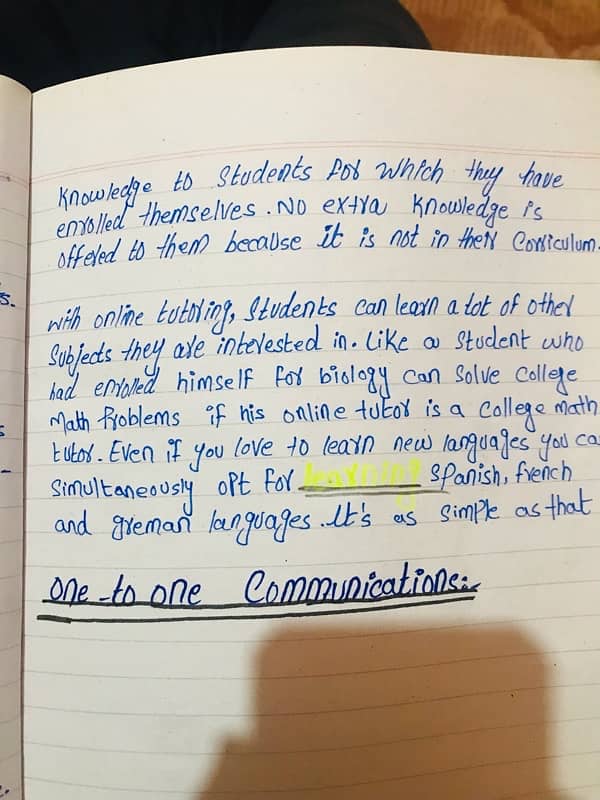 Knowledge to Students for which they have
enrolled themselves. No extra knowledge is
offered to them because it is not in their Corriculum.
with online tutoring, Students can learn a lot of other
Subjects they are interested in. Like a Student who
had enrolled himself for biology can Solve College
Math Problems if his online tutor is a College math
tutor. Even if you love to learn new languages you ca
Simultaneously opt for learning Spanish, french
and greman languages. It's as simple as that
one-to one Communications:-